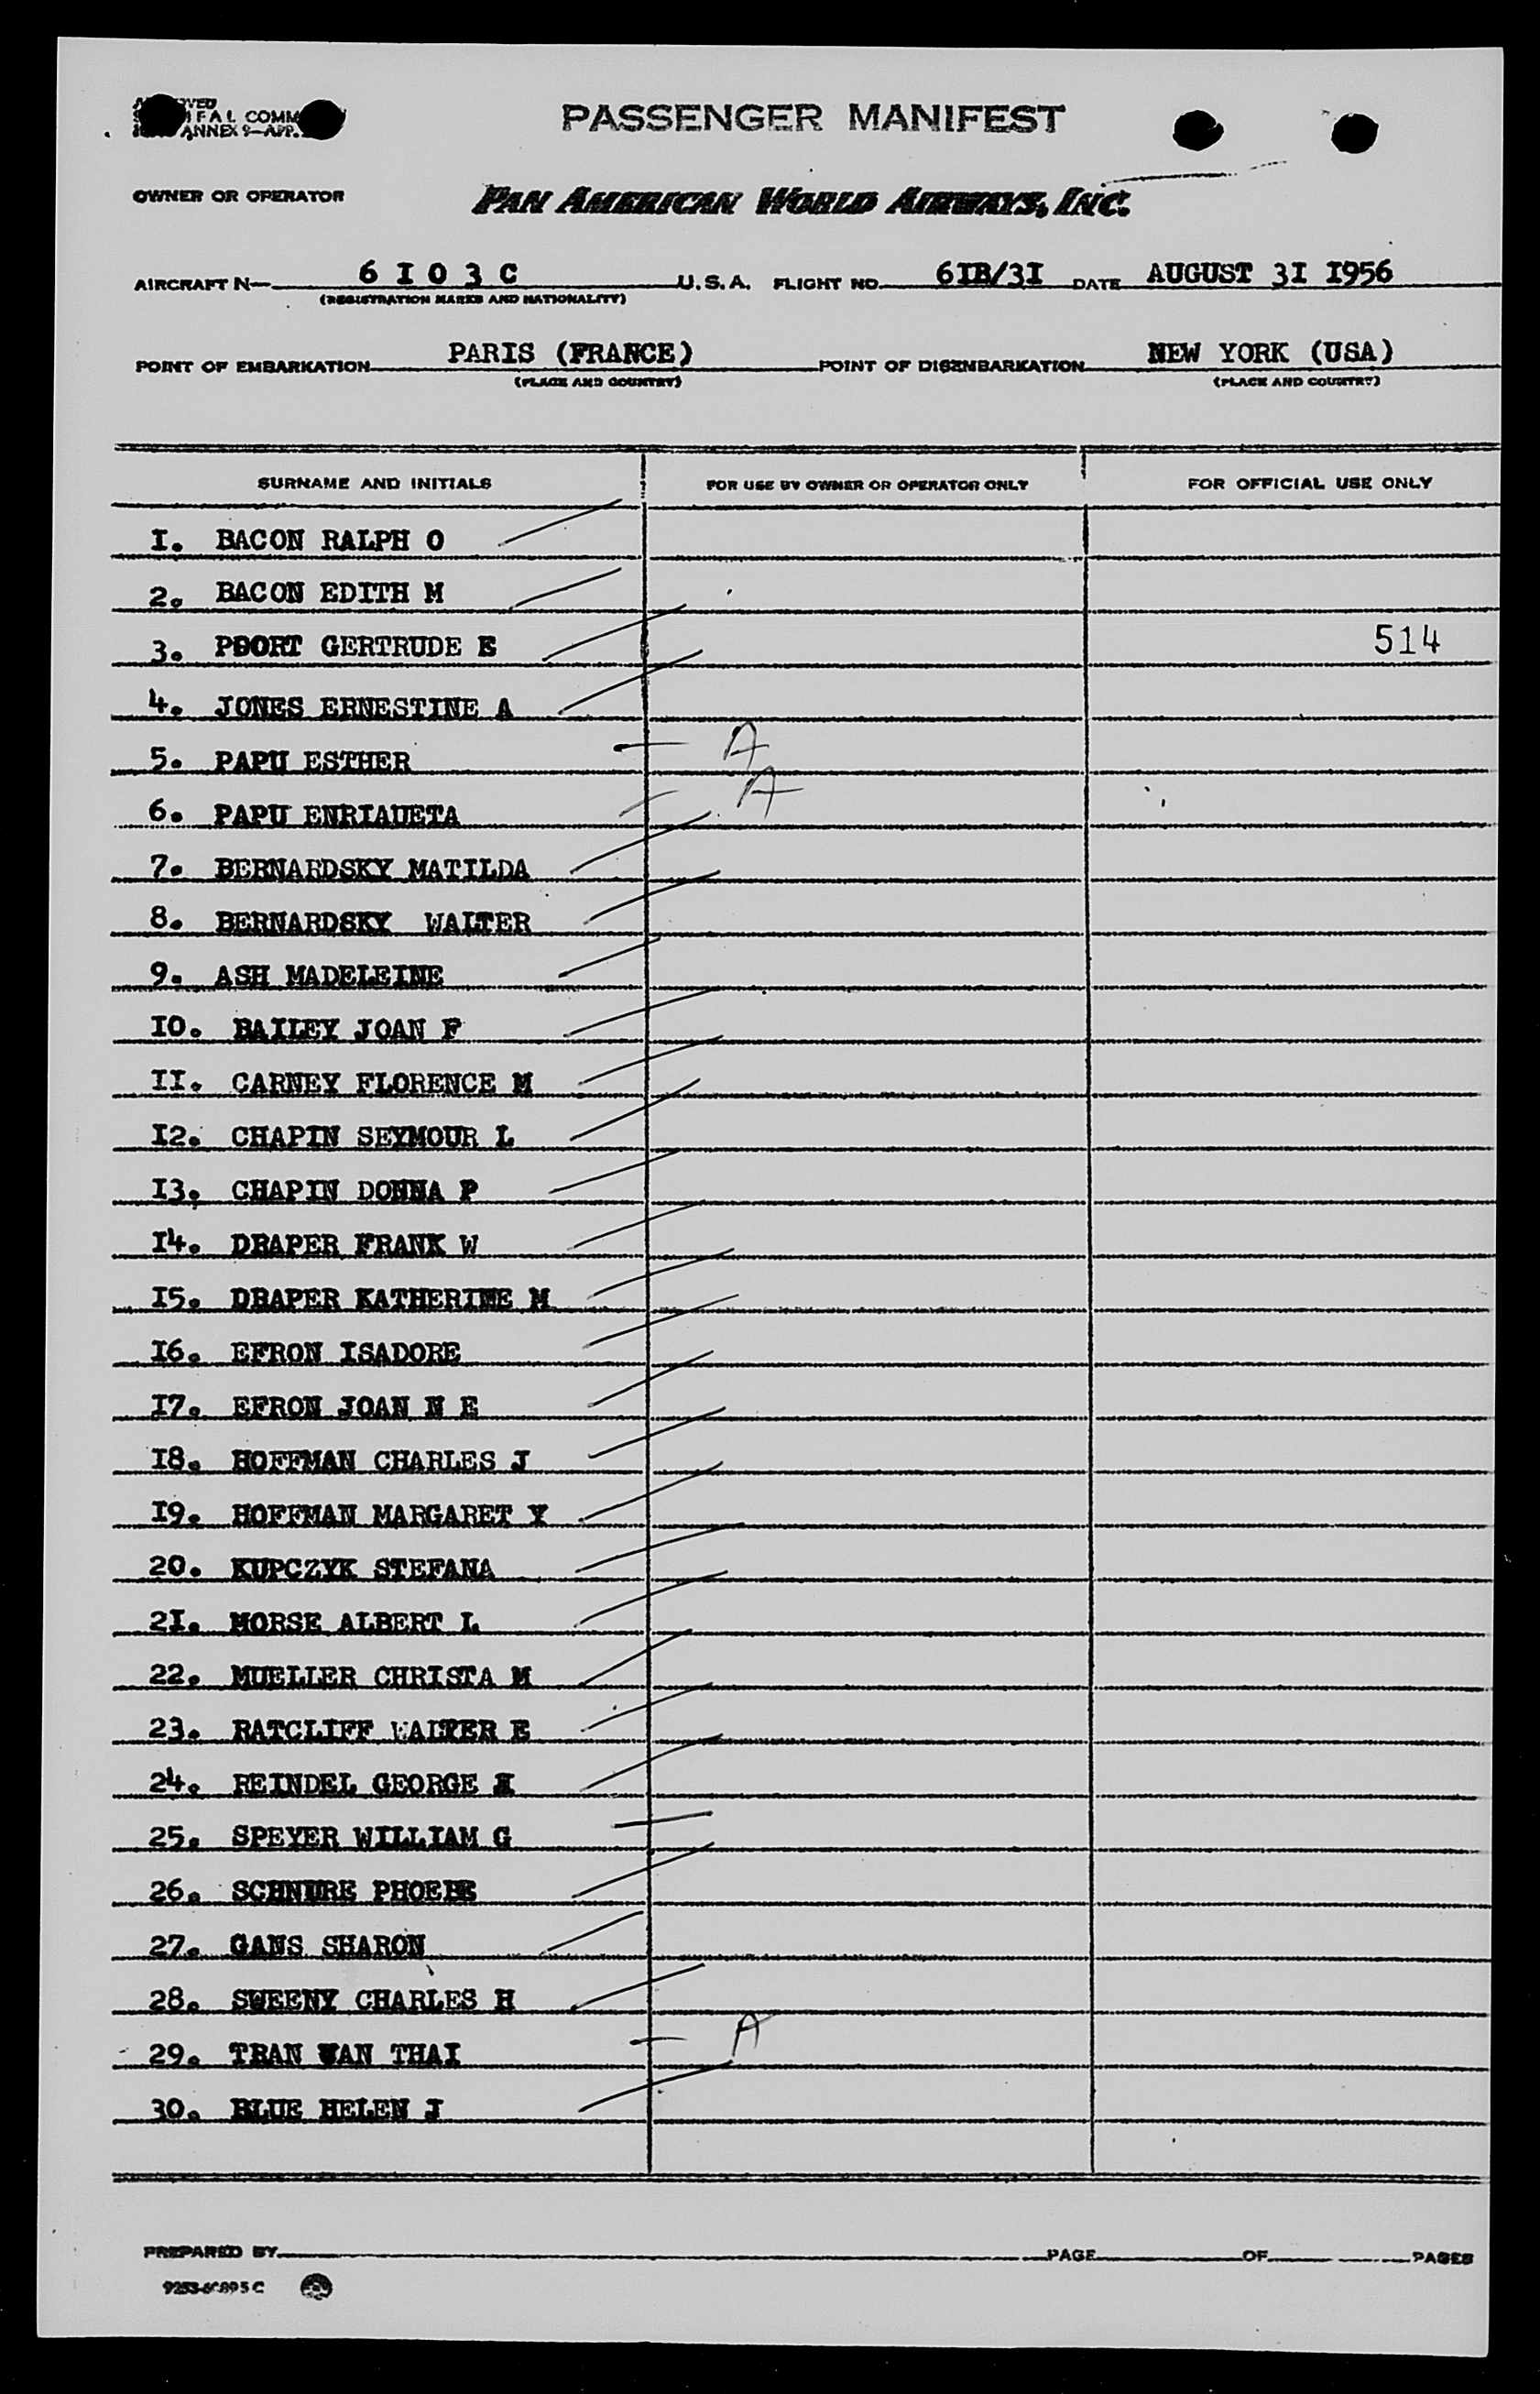 PASSENGER MANIFEST
ANNEX 9-APP.
OWNER OR OPERATOR PAN AMERICAN WORLD AIRWAYS, INC.
AIRCRAFT N- 6I03C U.S.A. FLIGHT NO. 6IB/3I DATE AUGUST 3I I956
(REGISTRATION MARKS AND NATIONALITY)
POINT OF EMBARKATION PARIS (FRANCE) POINT OF DISEMBARKATION NEW YORK (USA)
(PLACE AND COUNTRY) (PLACE AND COUNTRY)
SURNAME AND INITIALS FOR USE BY OWNER OR OPERATOR ONLY FOR OFFICIAL USE ONLY
I. BACON RALPH O
2. BACON EDITH M
3. GERTRUDE E 514
4. JONES ERNESTINE A
5. PAPU ESTHER A
6. PAPU ENRIAUETA A
7. BERNARDSKY MATILDA
8. BERNARDSKY WALTER
9. ASH MADELEINE
IO. BAILEY JOAN F
II. CARNEY FLORENCE M
I2. CHAPIN SEYMOUR L
I3. CHAPIN DONNA P
I4. DRAPER FRANK W
I5. DRAPER KATHERINE M
I6. EFRON ISADORE
I7. EFRON JOAN N E
I8. HOFFMAN CHARLES J
I9. HOFFMAN MARGARET Y
20. KUPCZYK STEFANA
2I. MORSE ALBERT L
22. MUELLER CHRISTA M
23. RATCLIFF WALTER E
24. REINDEL GEORGE
25. SPEYER WILLIAM G
26. SCHNURE PHOEBE
27. GANS SHARON
28. SWEENY CHARLES H
29. TRAN VAN THAI A
30. BLUE HELEN J
PREPARED BY PAGE OF PAGES